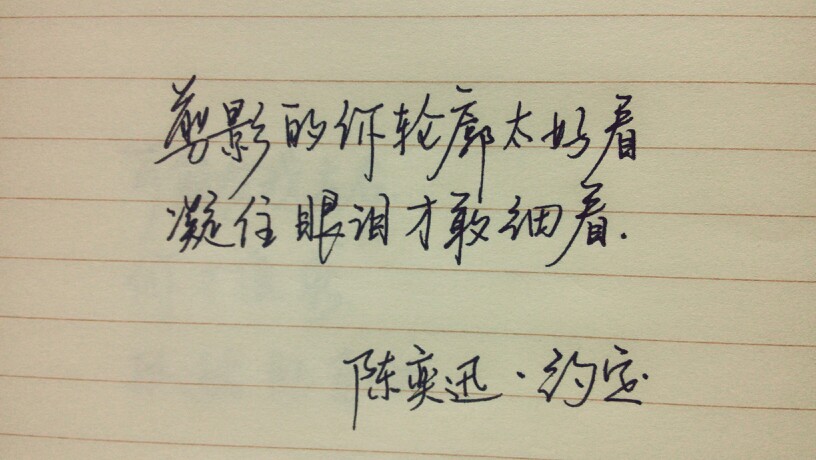 剪影的你轮廓太好看
凝住眼泪才敢细看.
陈奕迅·约定